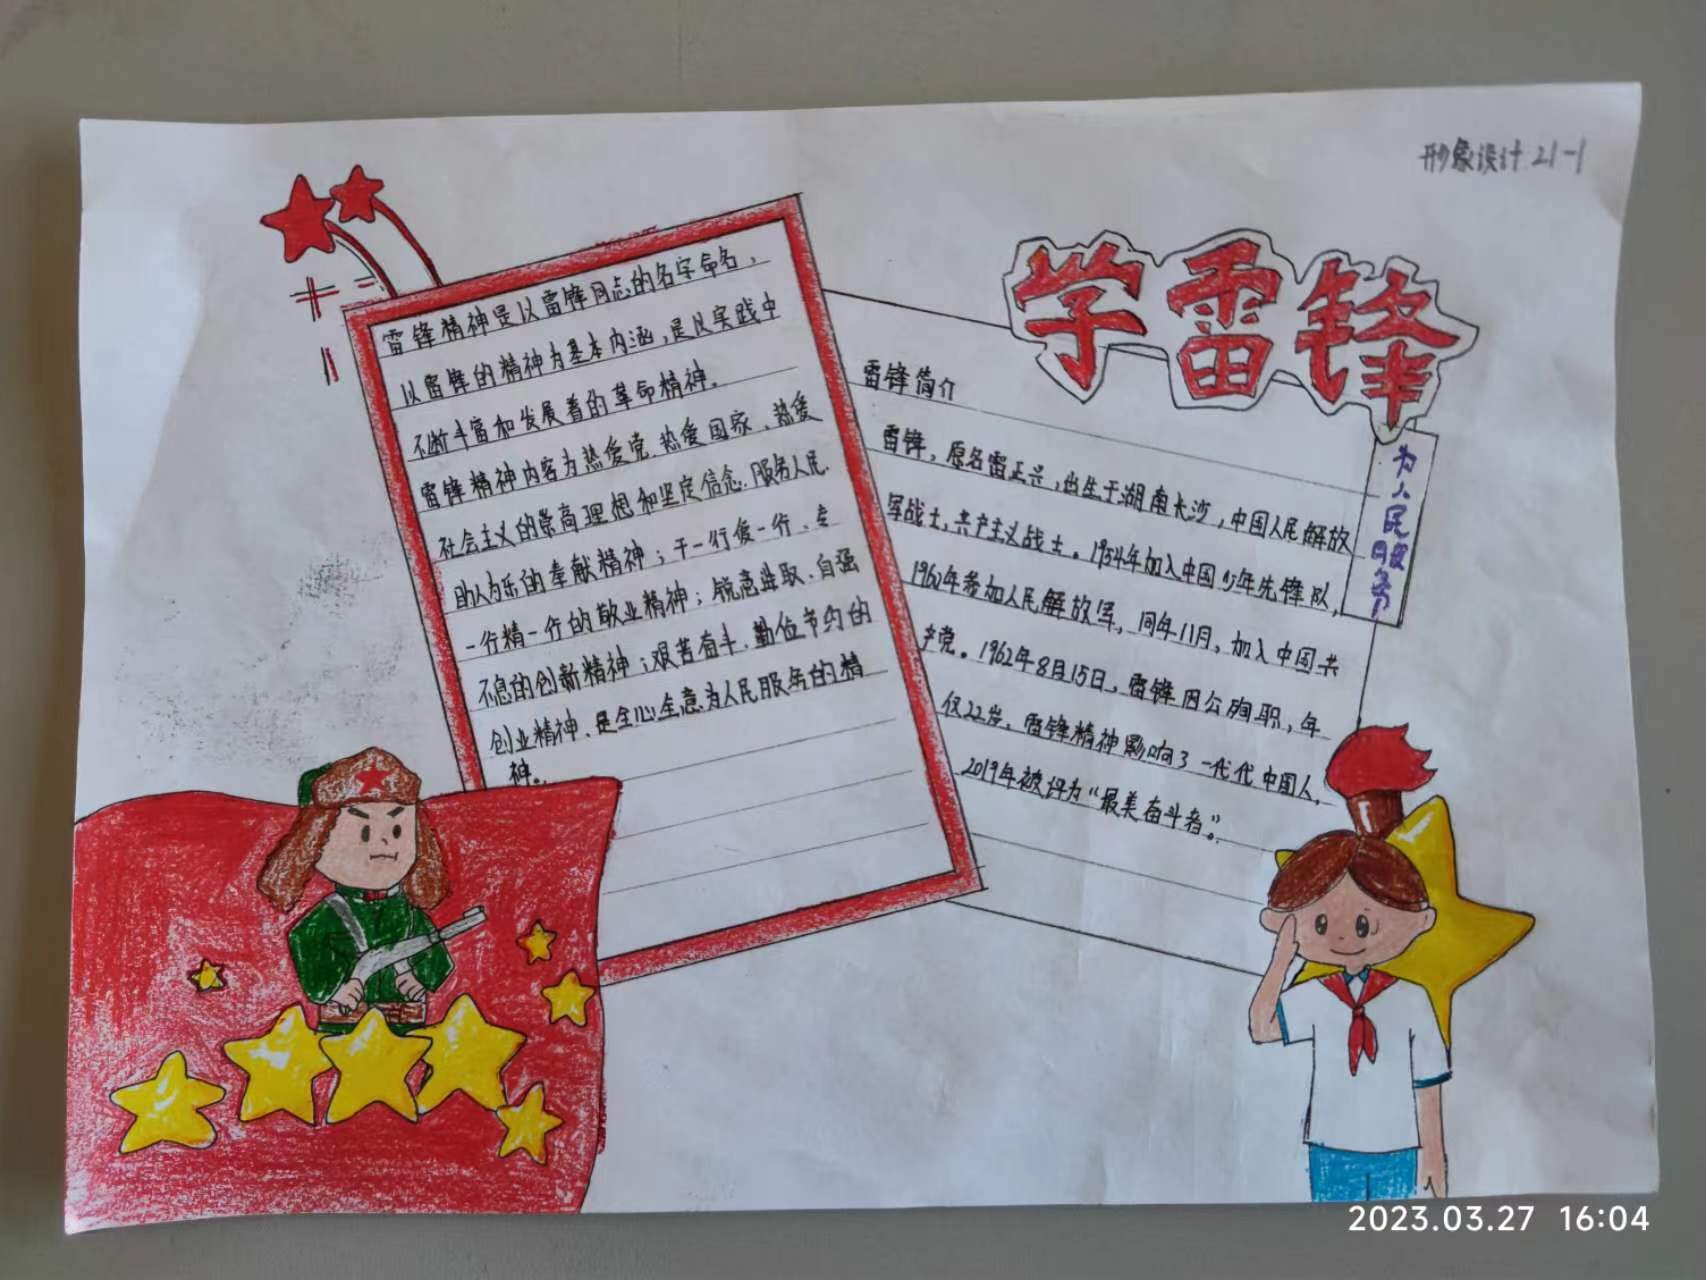 形象设计21-1
学雷锋
为人民服务
雷锋精神是以雷锋同志的名字命名，
以雷锋的精神为基本内涵，是以实践中
不断丰富和发展着的革命精神。
雷锋精神内容为热爱党、热爱国家、热爱
社会主义的崇高理想和坚定信念、服务人民、
助人为乐的奉献精神；干一行爱一行、专
一行精一行的敬业精神；锐意进取、自强
不息的创新精神；艰苦奋斗、勤俭节约的
创业精神、是全心全意为人民服务的精
神。
雷锋简介
雷锋，原名雷正兴，出生于湖南长沙，中国人民解放
军战士，共产主义战士。1954年加入中国少年先锋队，
1960年参加人民解放军，同年11月，加入中国共
产党。1962年8月15日，雷锋因公殉职，年
仅22岁，雷锋精神影响了一代代中国人，
2019年被评为“最美奋斗者”。
2023.03.27 16:04